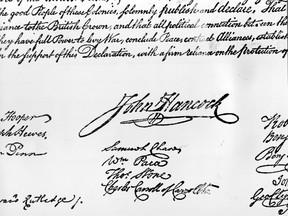 the good People of these Colonies, solemnly publish and declare, That
iance to the British Crown, and that all political connection between the
they have full Power to levy War, conclude Peace, contract Alliances, establish
n the support of this Declaration, with a firm reliance on the protection of
John Hancock
Hooper
ph Hewes,
Penn
Samuel Chase
Wm Paca
Thos Stone
Charles Carroll of Carrollton
Benj
Rutledge